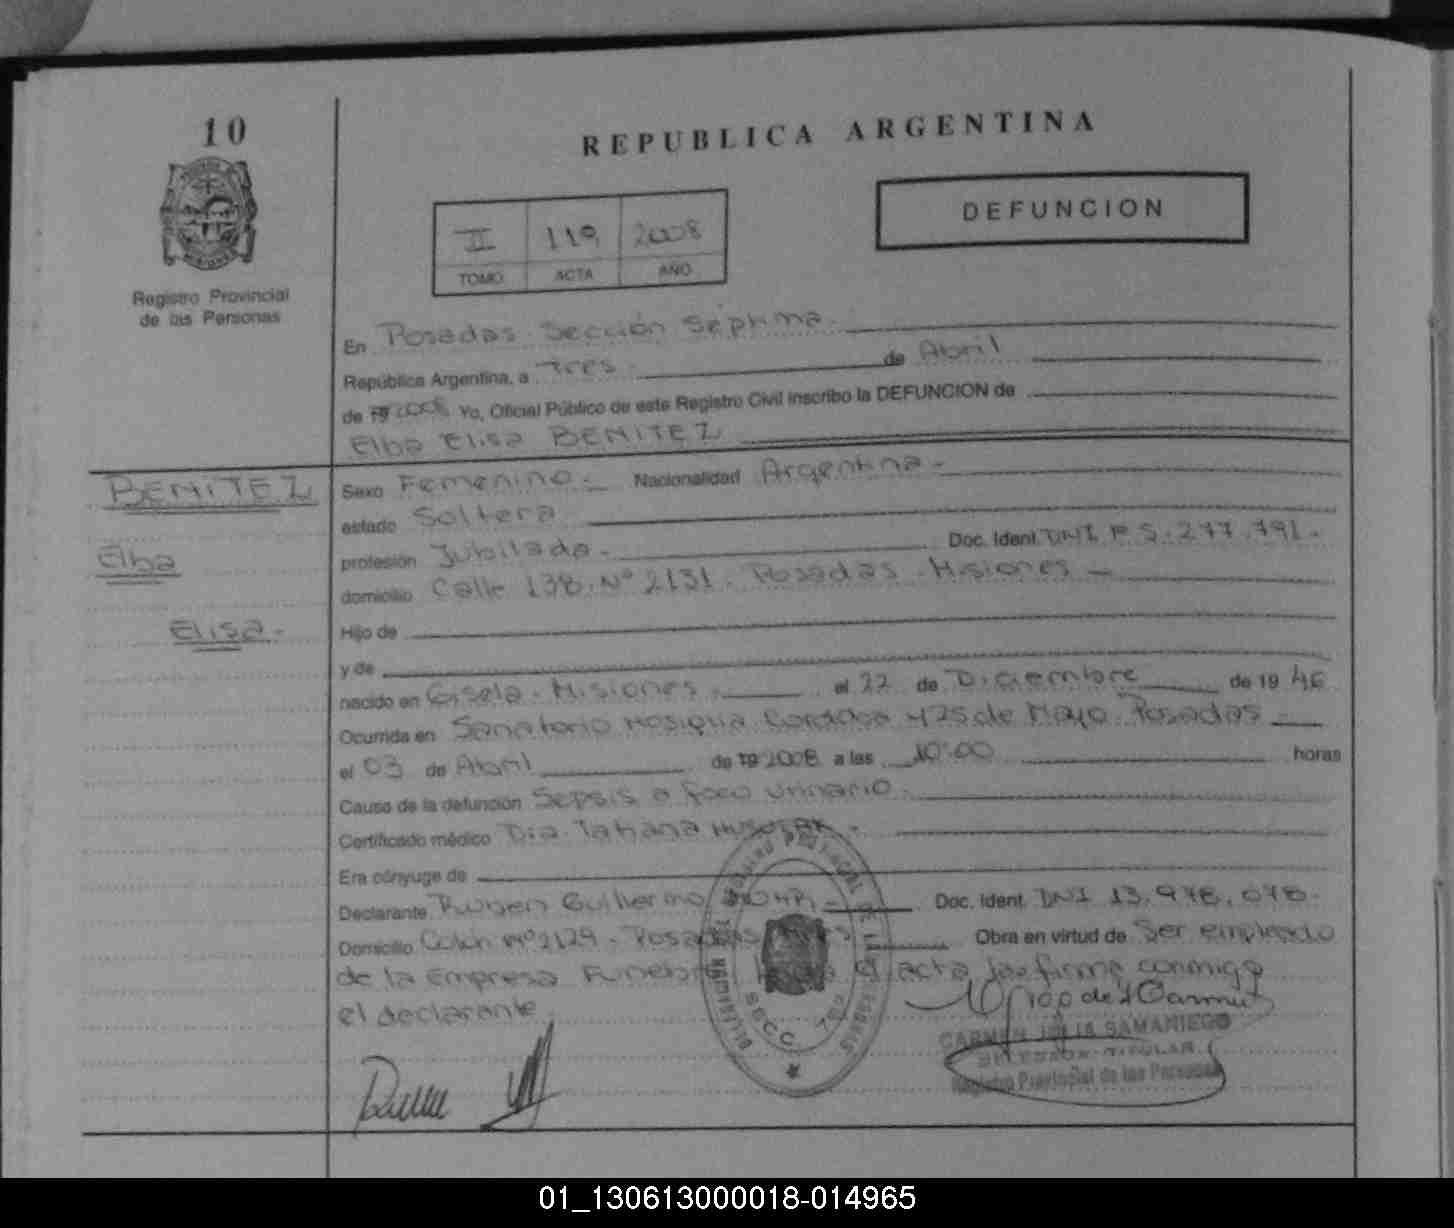 10
REPUBLICA ARGENTINA
DEFUNCION
II 119 2008
TOMO ACTA AÑO
Registro Provincial
de las Personas
En Posadas Sección Séptima
República Argentina, a Tres de Abril
de 19 2008 Yo, Oficial Público de este Registro Civil inscribo la DEFUNCION de
Elba Elisa BENITEZ
BENITEZ
Elba
Elisa.-
Sexo Femenino.- Nacionalidad Argentina.-
estado Soltera
profesión Jubilada.- Doc. Ident. DNI F 5.277.791.-
domicilio Calle 138 Nº 2131. Posadas. Misiones -
Hijo de
y de
nacido en Misiones. el 22 de Diciembre de 19 46
Ocurrida en Sanatorio Cordoba de Mayo. Posadas
el 03 de Abril de 19 2008 a las 10:00 horas
Causa de la defunción Sepsis a foco urinario.
Certificado médico Dra. Tatiana
Era cónyuge de
Declarante Ruben Guillermo Doc. Ident. DNI 13.978.078.
Domicilio Colon Nº2129 - Posadas Obra en virtud de Ser empleado
de la Empresa el acta la firma conmigo
el declarante.
CARMEN JULIA SAMANIEGO
TITULAR
Registro Provincial de las Personas
01_130613000018-014965